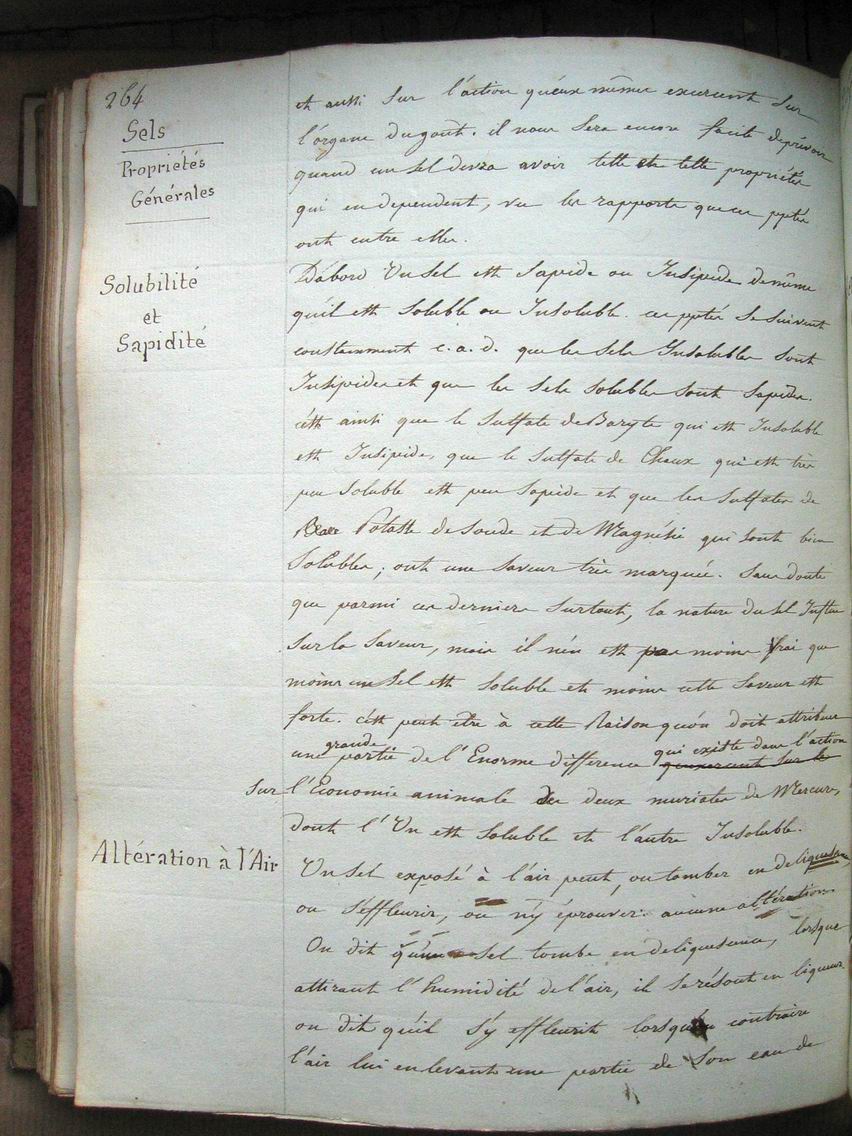 264
Sels
Propriétés
Générales
et aussi sur l'action qu'eux mêmes exercent sur
l'organe du goût. il nous sera encore facile de prévoir
quand un sel devra avoir telle et telle propriétés
qui en dependent, vu les rapports que ces pptés
ont entre elles.
Solubilité
et
Sapidité
D'abord Un sel est Sapide ou Insipide de même
qu'il est Soluble ou Insoluble. ces pptés se suivent
constamment c. a. d. que les sels Insolubles sont
Insipides et que les sels solubles sont sapides.
c'est ainsi que le Sulfate de Baryte qui est Insoluble
est Insipide, que le sulfate de Chaux qui est très
peu soluble est peu sapide et que les sulfates de
Potasse de Soude et de Magnésie qui sont bien
Solubles; ont une saveur très marquée. Sans doute
que parmi ces derniers surtout, la nature du sel Influe
sur la saveur, mais il n'en est pas moins vrai que
moins un sel est soluble et moins cette saveur est
forte. c'est peut être à cette Raison qu'on doit attribuer
une grande partie de l'Enorme difference qui existe dans l'action
sur l'Economie animale des deux muriates de Mercure,
dont l'Un est soluble et l'autre Insoluble.
Altération à l'Air
Un Sel exposé à l'air peut, ou tomber en deliquescence,
ou s'éffleurir, ou n'y éprouver aucune altération.
On dit qu'un sel tombe en deliquesence, lorsque
attirant l'humidité de l'air, il se résout en liqueur
on dit qu'il s'y effleurit lorsqu'au contraire
l'air lui enlevant une partie de son eau de